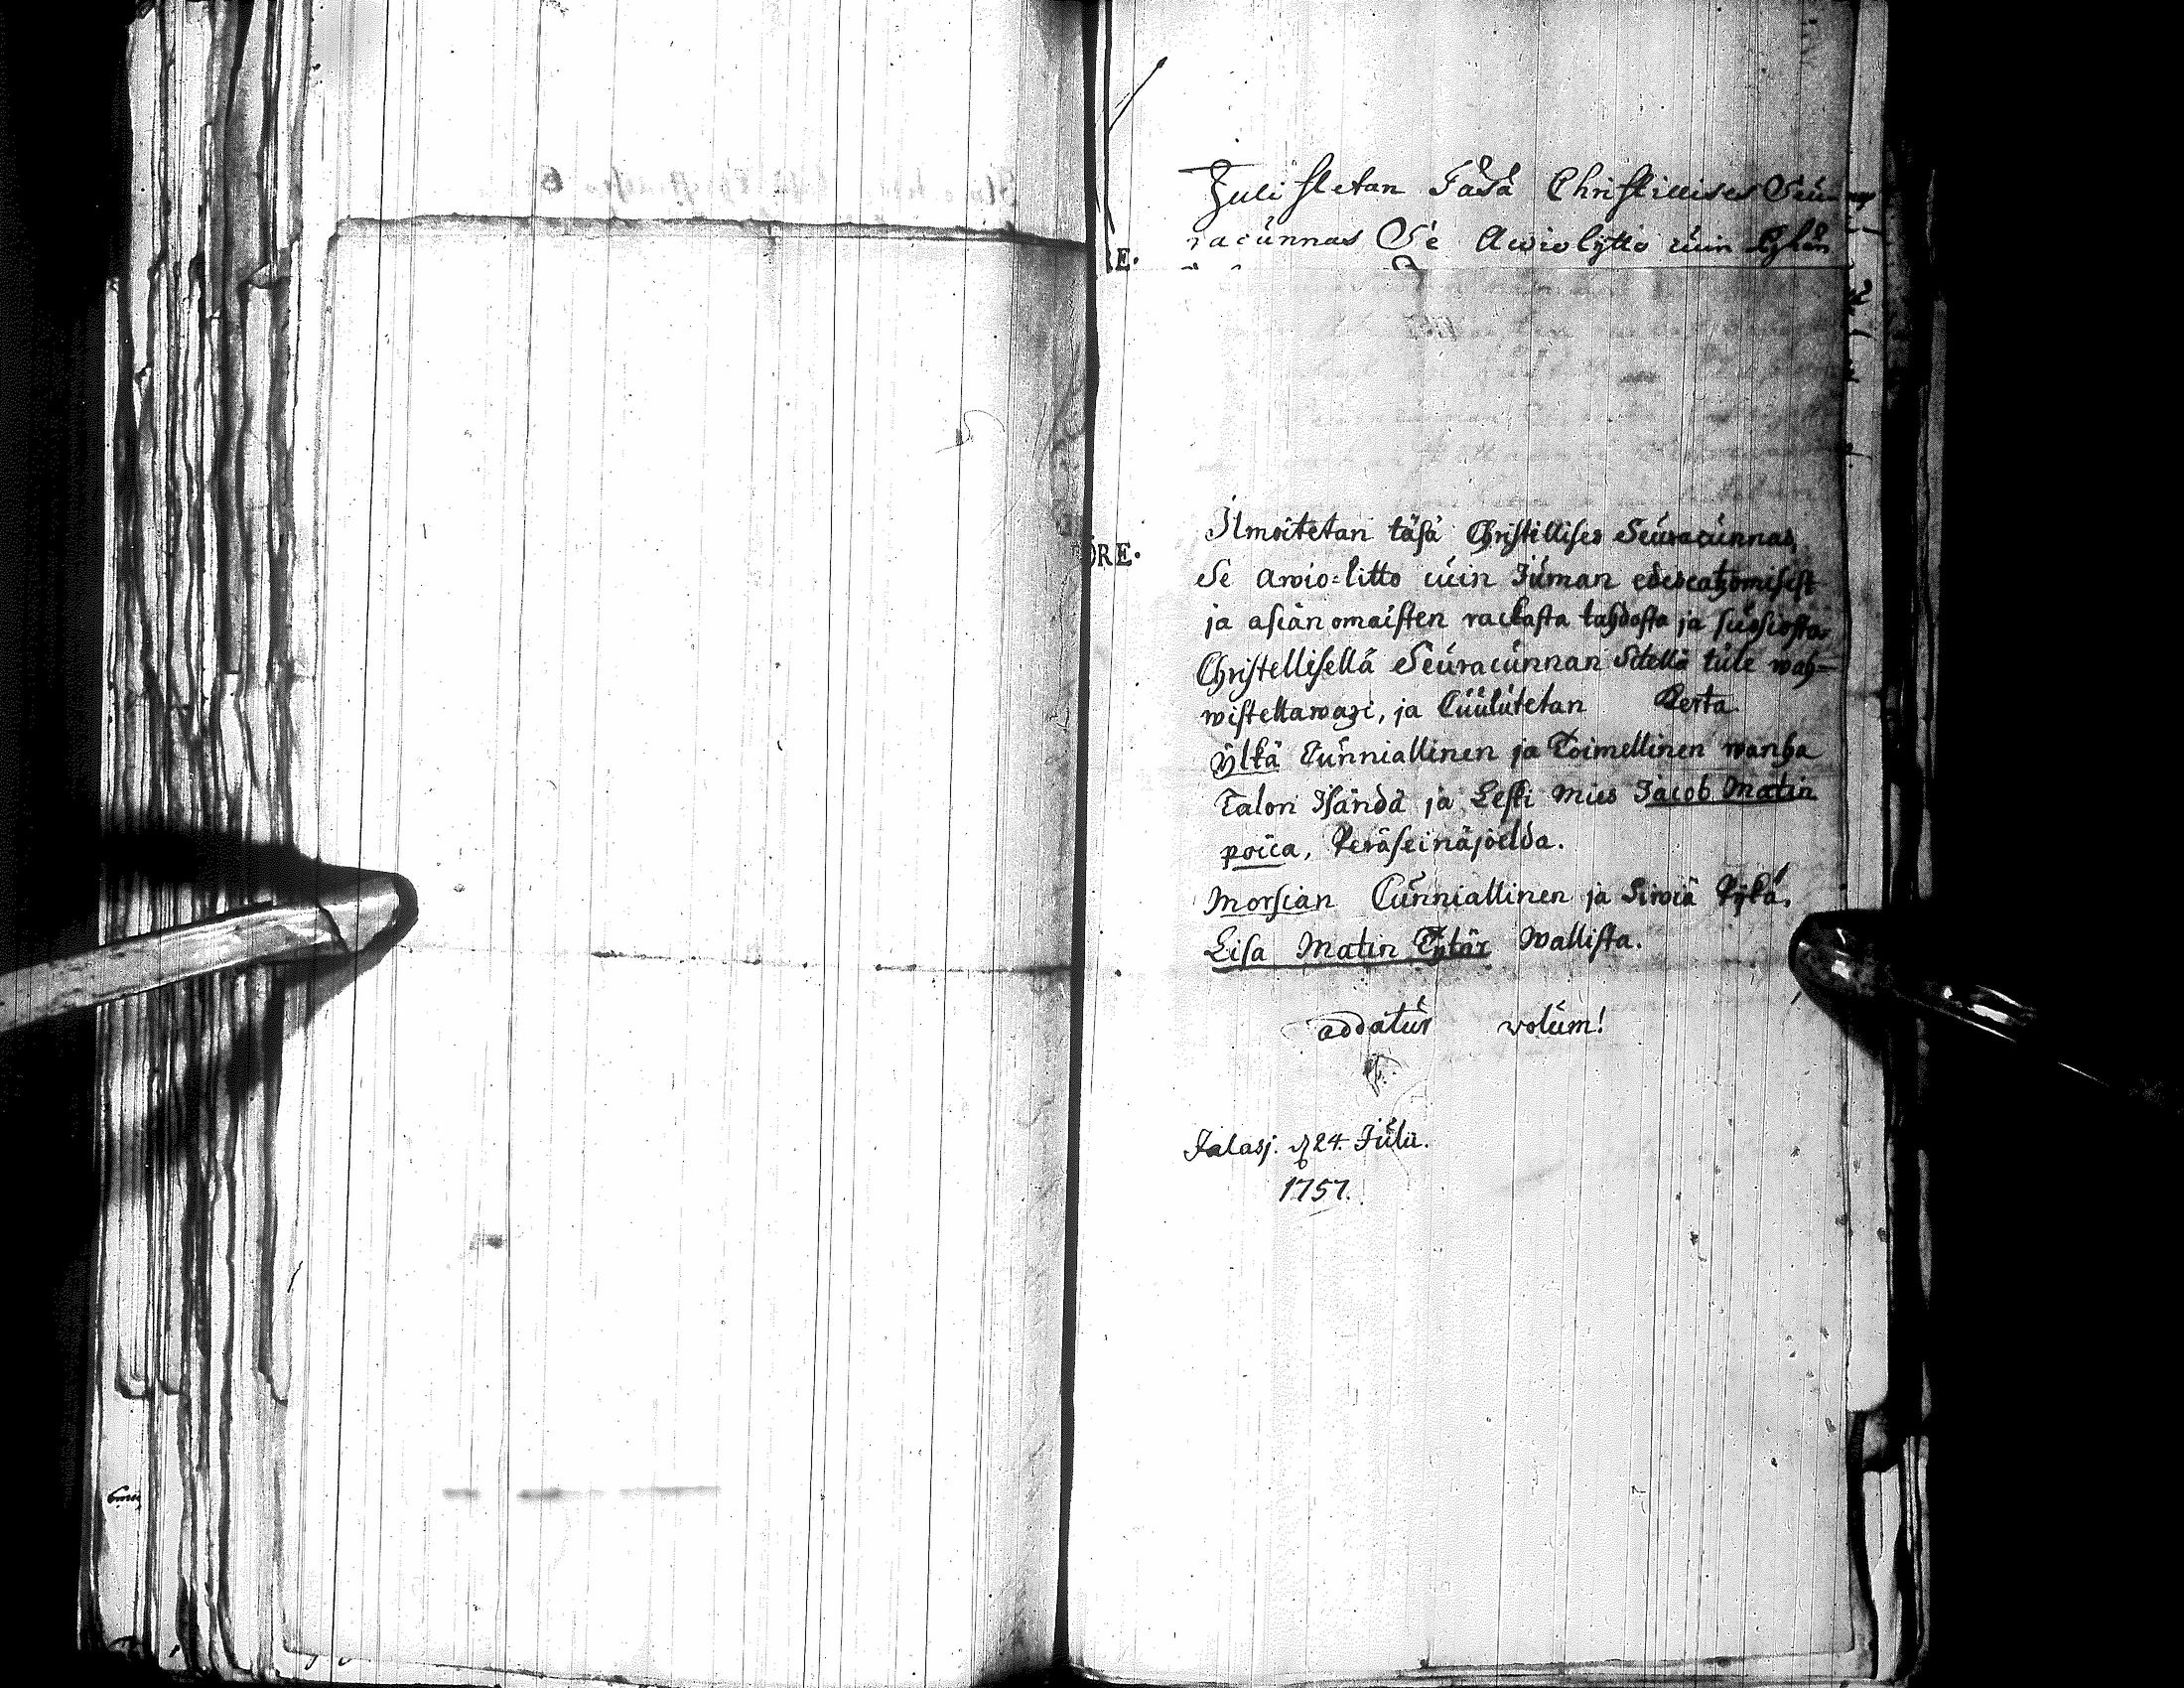 Julistetan Täsä Christillises Seu-
racunnas Se Awiolijtto cuin Pyhän
RE.
Ilmoitetan täsä Christillises Seuracunnas,
ÖRE.
Se awio=litto cuin Juman edescatzomisest
ja asian omaisten rackasta tahdosta ja suosiosta
Christellisellä Seuracunnan Sitellä tule wah-
wistettawaxi, ja Cuulutetan Kerta
Ylkä Cunniallinen ja Toimellinen wanha
Talon Isändä ja Leski mies Jacob Matin
poica, Peräseinäjoelda.
Morsian Cunniallinen ja Siwiä Pijka,
Lisa Matin Tytär Wallista.
addatur votum!
Jalasj. d 24. Julii.
1757.